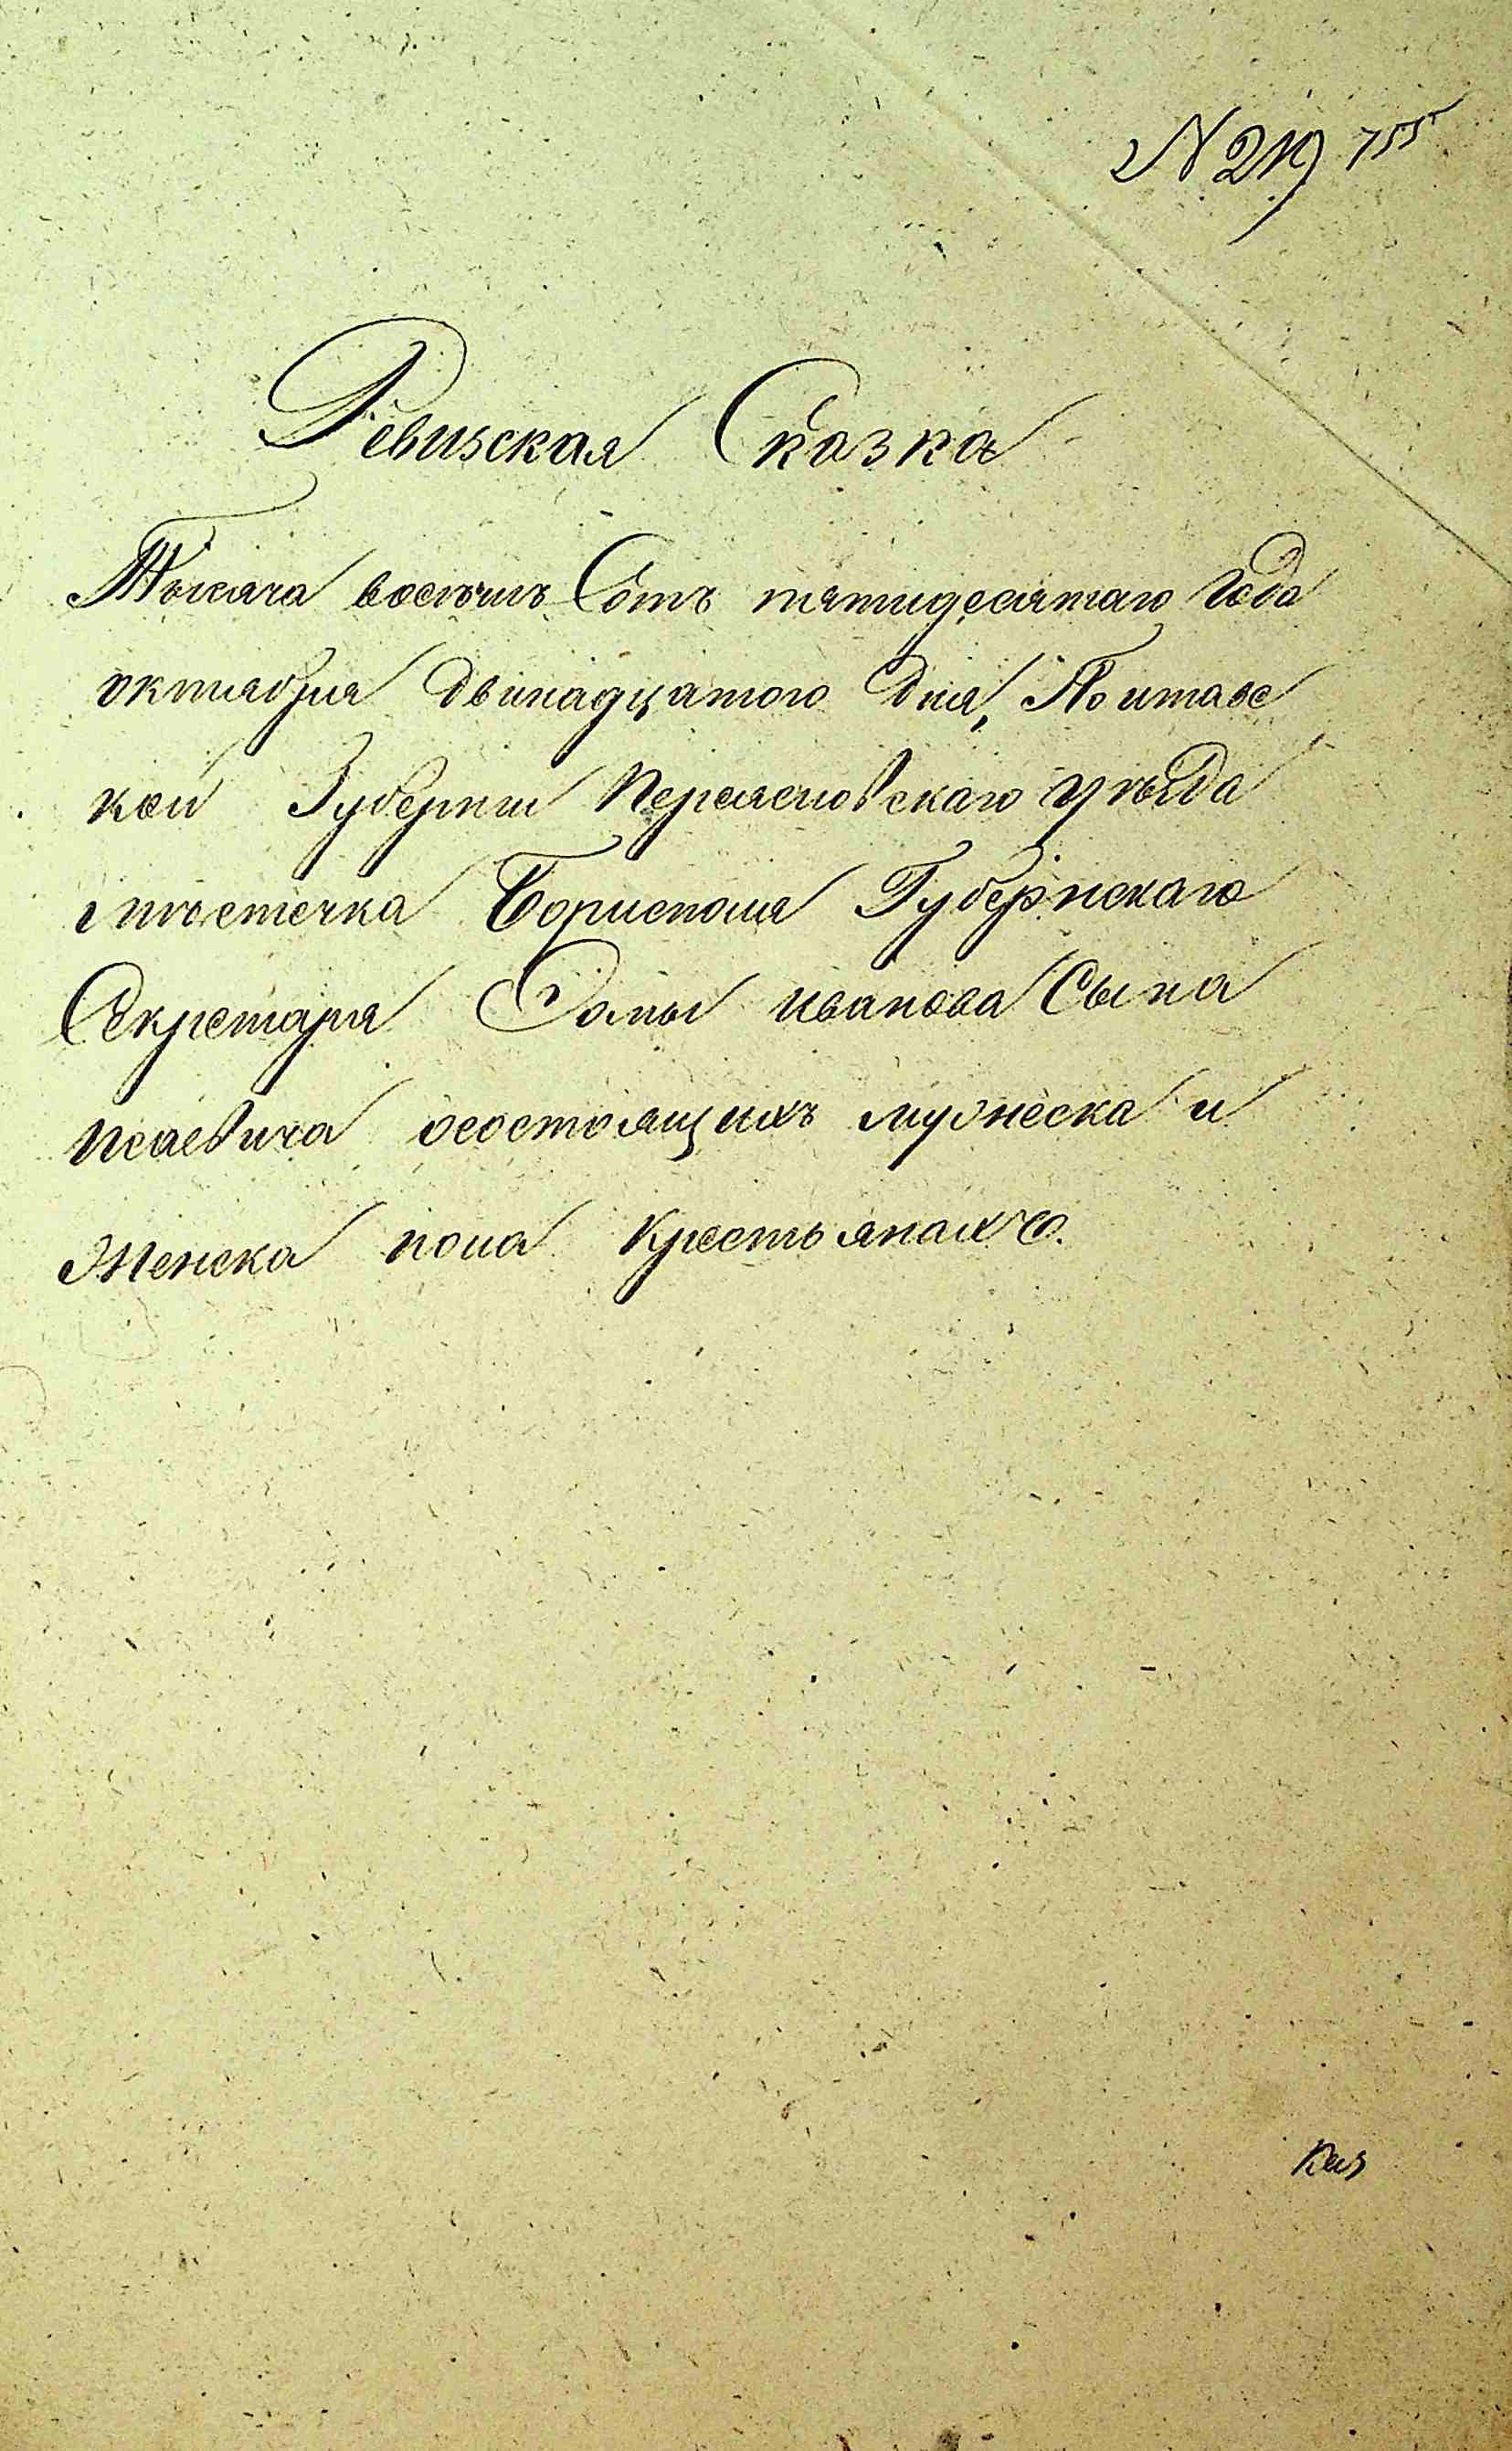 N 219 755
Ревизская Сказка
Тысяча восемь Сотъ пятидесятаго Года
октиабря двинадцатого дня, Полтавс
кой Губернии Переяславскаго уезда
мѣстечка Борисполя Губернскаго
Секретаря Фомы иванова Сына
Исаевича осостоящихъ мужеска и
женска пола крестьянахъ.